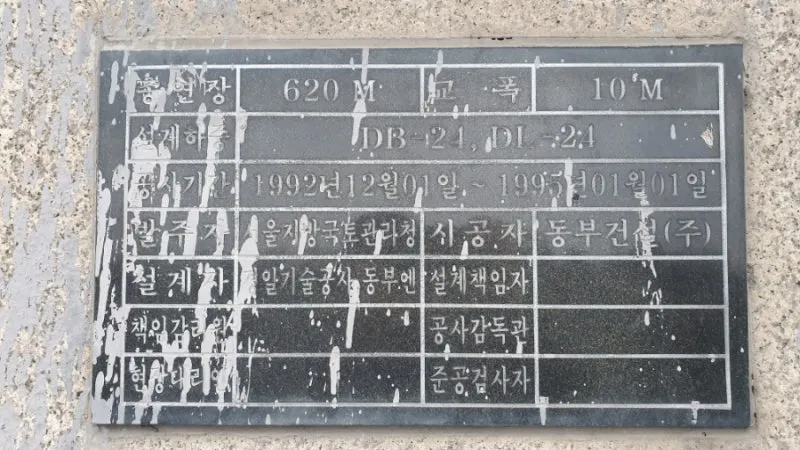 총연장 620 M 교 폭 10 M
설계하중 DB-24, DL-24
공사기간 1992년12월01일 ~ 1995년01월01일
발주자 서울지방국토관리청 시공자 동부건설(주)
설계자 동부엔 설계책임자
책임감리원 공사감독관
현장대리인 준공검사자